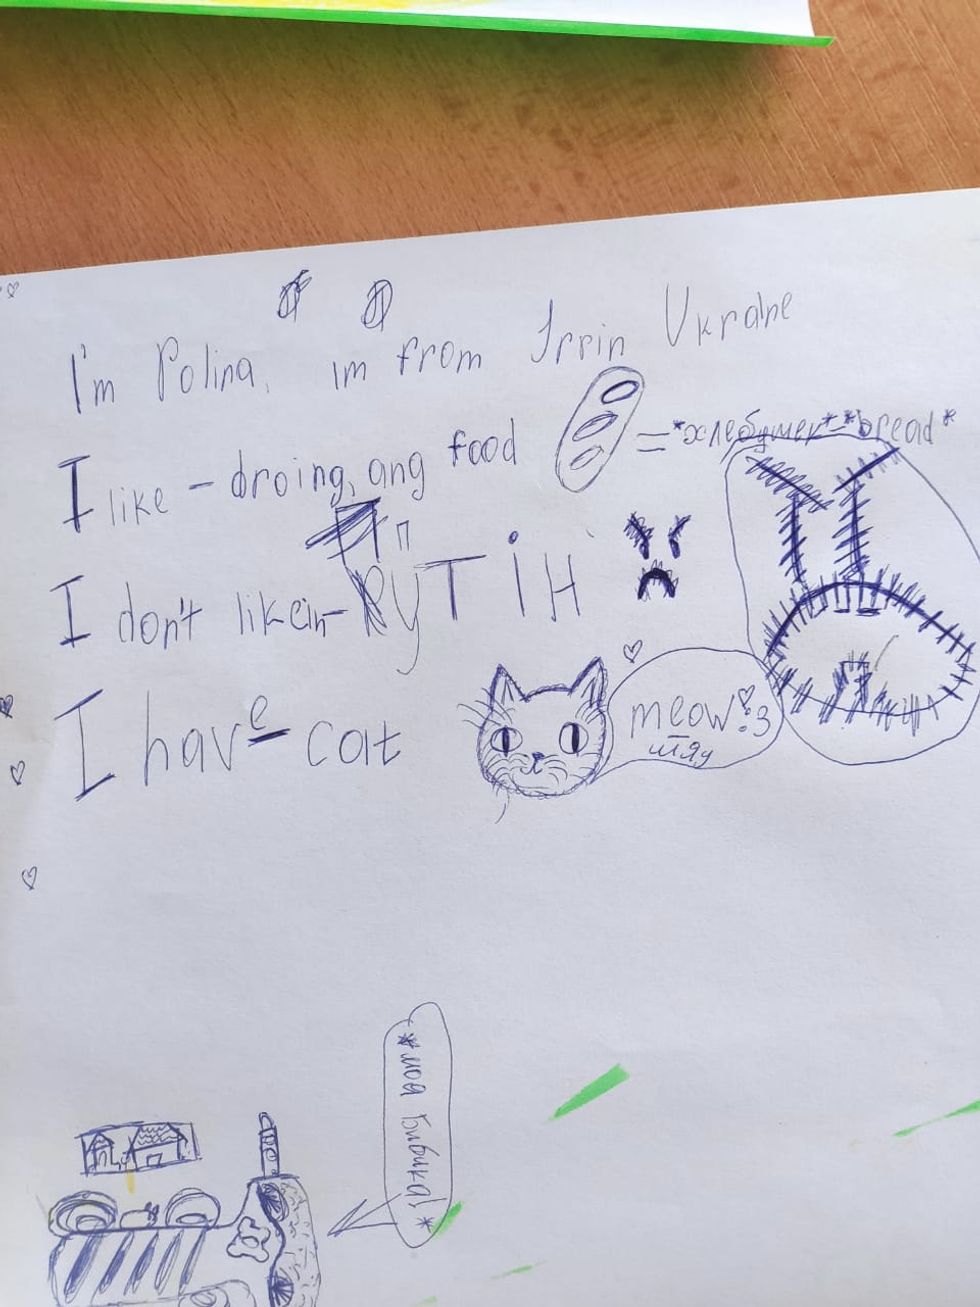 I'm Polina, im from Irpin Ukraine
I like - droing, ang food = *хлебушек* - *bread*
I don't like in - ПУТІН
I have - cat
meow :3
мяу
*моя бибика!*